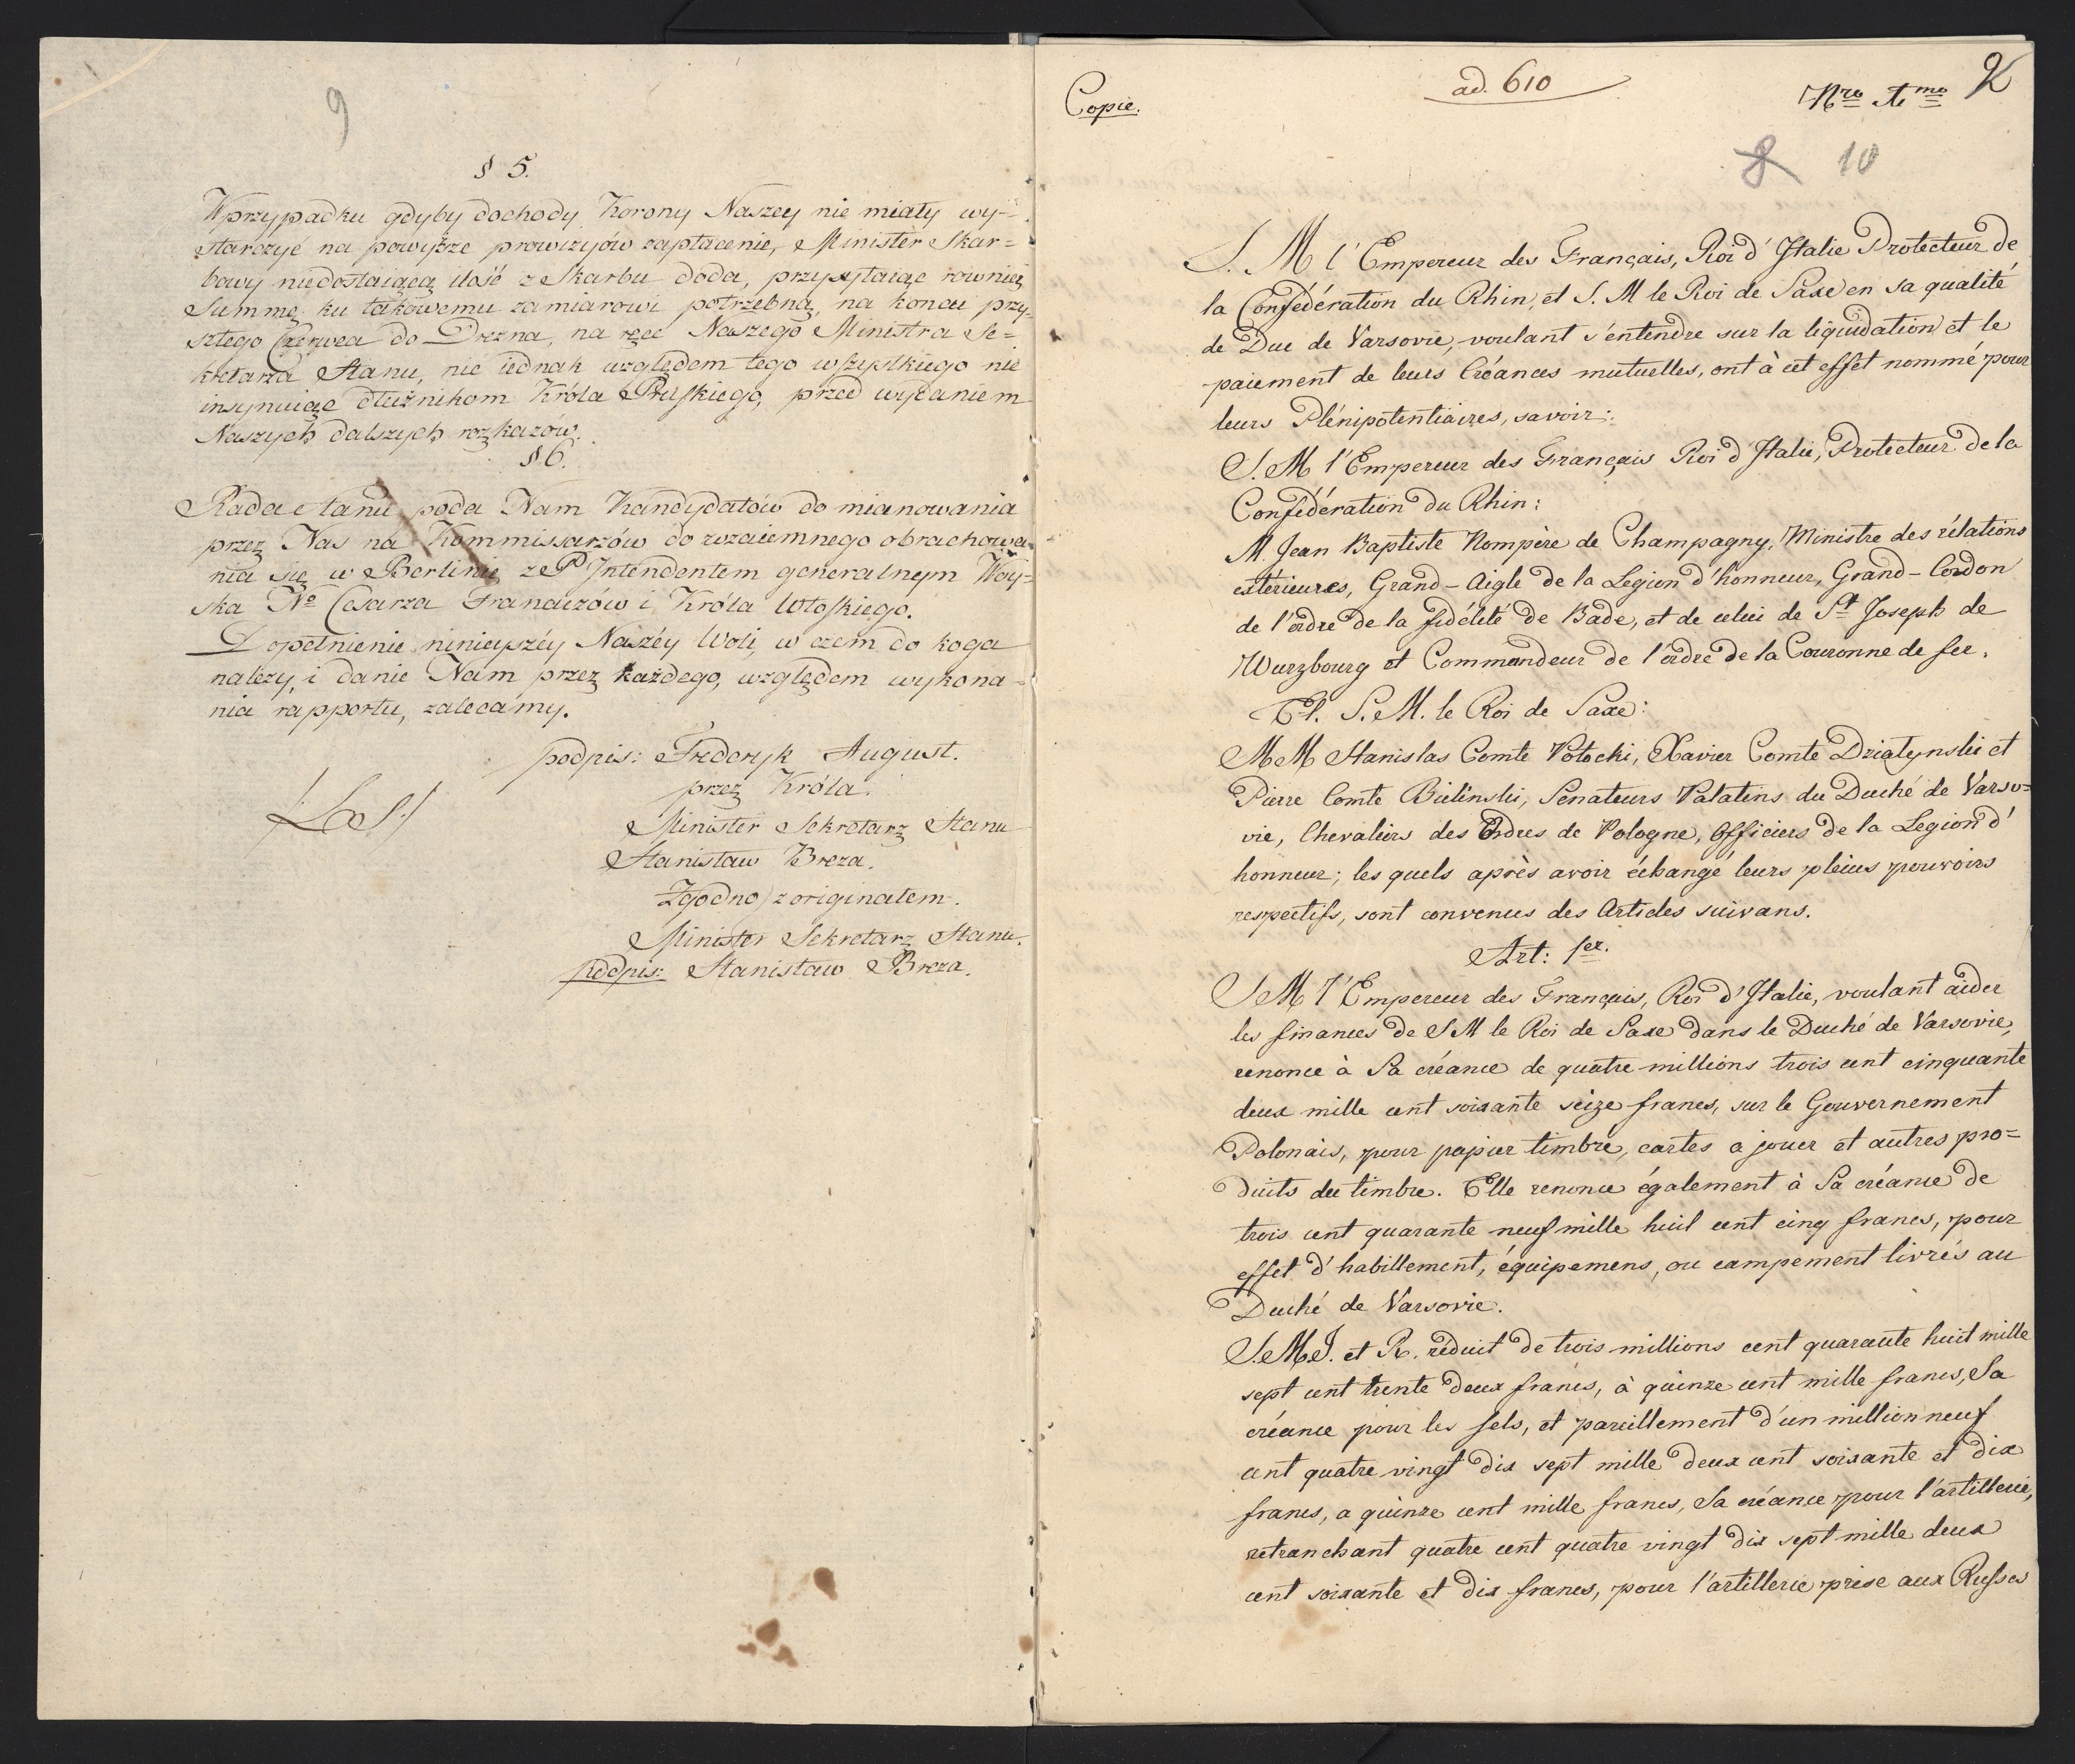 9
§ 5.
W przypadku gdyby dochody Korony Naszey nie miały wy-
starczyć na powyższe prowizyów zapłacenie, Minister Skar=
bowy niedostaiącą ilość z Skarbu doda, przysyłaiąc rownież
Summę ku takowemu zamiarowi potrzebną, na koncu przy-
szłego Czerwca do Drezna, na ręce Naszego Ministra Se=
kretarza Stanu, nic iednak względem tego wszystkiego nie
insynuiąc dłużnikom Króla Pruskiego, przed wydaniem
Naszych dalszych rozkazów.
§ 6.
Rada Stanu poda Nam Kandydatów do mianowania
przez Nas na Kommissarzów do wzaiemnego obrachowa-
nia się w Berlinie z P Intendentem generalnym Woy=
ska No Cesarza Francuzów i Króla Włoskiego.
Dopełnienie ninieyszéy Naszéy Woli, w czem do kogo
należy, i danie Nam przez każdego, względem wykona=
nia rapportu, zalecamy.
podpis: Frederyk August.
przez Króla.
/L.S./
Minister Sekretarz Stanu
Stanisław Breza.
Zgodno z originałem.
Minister Sekretarz Stanu.
podpis: Stanisław Breza.
Copie.
ad. 610
Nro A mo 2
8 10
S. M l'Empereur des Français, Roi d'Italie Protecteur de
la Confédération du Rhin, et S. M le Roi de Saxe en sa qualité
de Duc de Varsovie, voulant s'entendre sur la liquidation et le
paiement de leurs Créances mutuelles, ont à cet effet nommé pour
leurs Plénipotentiaires, savoir:
S. M l'Empereur des Français Roi d'Italie, Protecteur de la
Confédération du Rhin:
M Jean Baptiste Nompère de Champagny, Ministre des rélations
extérieures, Grand-Aigle de la Legion d'honneur, Grand-Cordon
de l'ordre de la fidélité de Bade, et de celui de St Joseph de
Wurzbourg et Commandeur de l'ordre de la Couronne de fer.
Et. S. M. le Roi de Saxe:
M M Stanislas Comte Potocki, Xavier Comte Dziatynski et
Pierre Comte Bielinski, Senateurs Palatins du Duché de Varso=
vie, Chevaliers des Ordres de Pologne, Officiers de la Legion d'
honneur; les quels après avoir échangé leurs pleins pouvoirs
respectifs, sont convenus des Articles suivans.
Art: 1er.
S M l'Empereur des Français, Roi d'Italie, voulant aider
les finances de S M le Roi de Saxe dans le Duché de Varsovie,
renonce à Sa créance de quatre millions trois cent cinquante
deux mille cent soixante seize francs, sur le Gouvernement
Polonais, pour papier timbre, cartes a jouer et autres pro=
duits du timbre. Elle renonce également à Sa créance de
trois cent quarante neuf mille huit cent cinq francs, pour
effet d'habillement, équipemens, ou campement livrés au
Duché de Varsovie.
S. M. I. et R. réduit de trois millions cent quarante huit mille
sept cent trente deux francs, à quinze cent mille francs, Sa
créance pour les sels, et pareillement d'un million neuf
cent quatre vingt dix sept mille deux cent soixante et dix
francs, a quinze cent mille francs, Sa créance pour l'artillerie,
retranchant quatre cent quatre vingt dix sept mille deux
cent soixante et dix francs, pour l'artillerie prise aux Russes